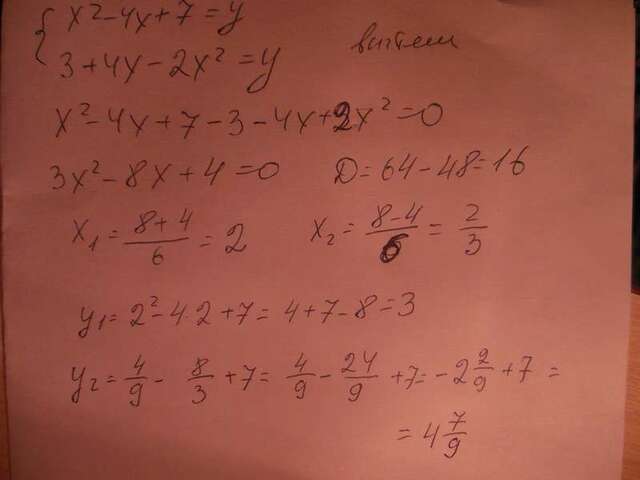 x² - 4x + 7 = y
3 + 4x - 2x² = y
вычтем
x² - 4x + 7 - 3 - 4x + 2x² = 0
3x² - 8x + 4 = 0 D = 64 - 48 = 16
x₁ = (8+4)/6 = 2 x₂ = (8-4)/6 = 2/3
y₁ = 2² - 4·2 + 7 = 4 + 7 - 8 = 3
y₂ = 4/9 - 8/3 + 7 = 4/9 - 24/9 + 7 = -2 2/9 + 7 =
= 4 7/9